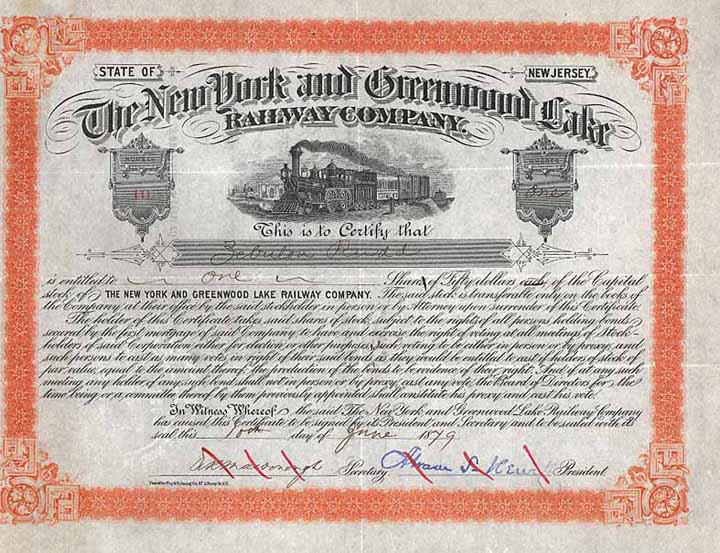 STATE OF NEW JERSEY.
The New York and Greenwood Lake
RAILWAY COMPANY.
NUMBER
111
SHARES
One
This is to Certify that
Zebulon Rudd
is entitled to One Shares of Fifty dollars each of the Capital
stock of THE NEW YORK AND GREENWOOD LAKE RAILWAY COMPANY. The said stock is transferable only on the books of
the Company at their office by the said stockholder in person or by Attorney upon surrender of this Certificate.
The holder of this Certificate takes said shares of stock, subject to the rights of all persons holding bonds
secured by the first mortgage of said Company to have and exercise the right of voting at all meetings of Stock-
holders of said Corporation either for election or other purposes, such voting to be either in person or by proxy, and
such persons to cast as many votes in right of their said bonds as they would be entitled to cast if holders of stock of
par value, equal to the amount thereof. The production of the bonds to be evidence of their right. And if at any such
meeting any holder of any such bond shall not in person or by proxy cast any vote, the Board of Directors for the
time being or a committee thereof by them previously appointed shall constitute his proxy and cast his vote.
In Witness Whereof the said The New York and Greenwood Lake Railway Company
has caused this Certificate to be signed by its President and Secretary and to be sealed with its
seal this 10th day of June 1879
Secretary. President.